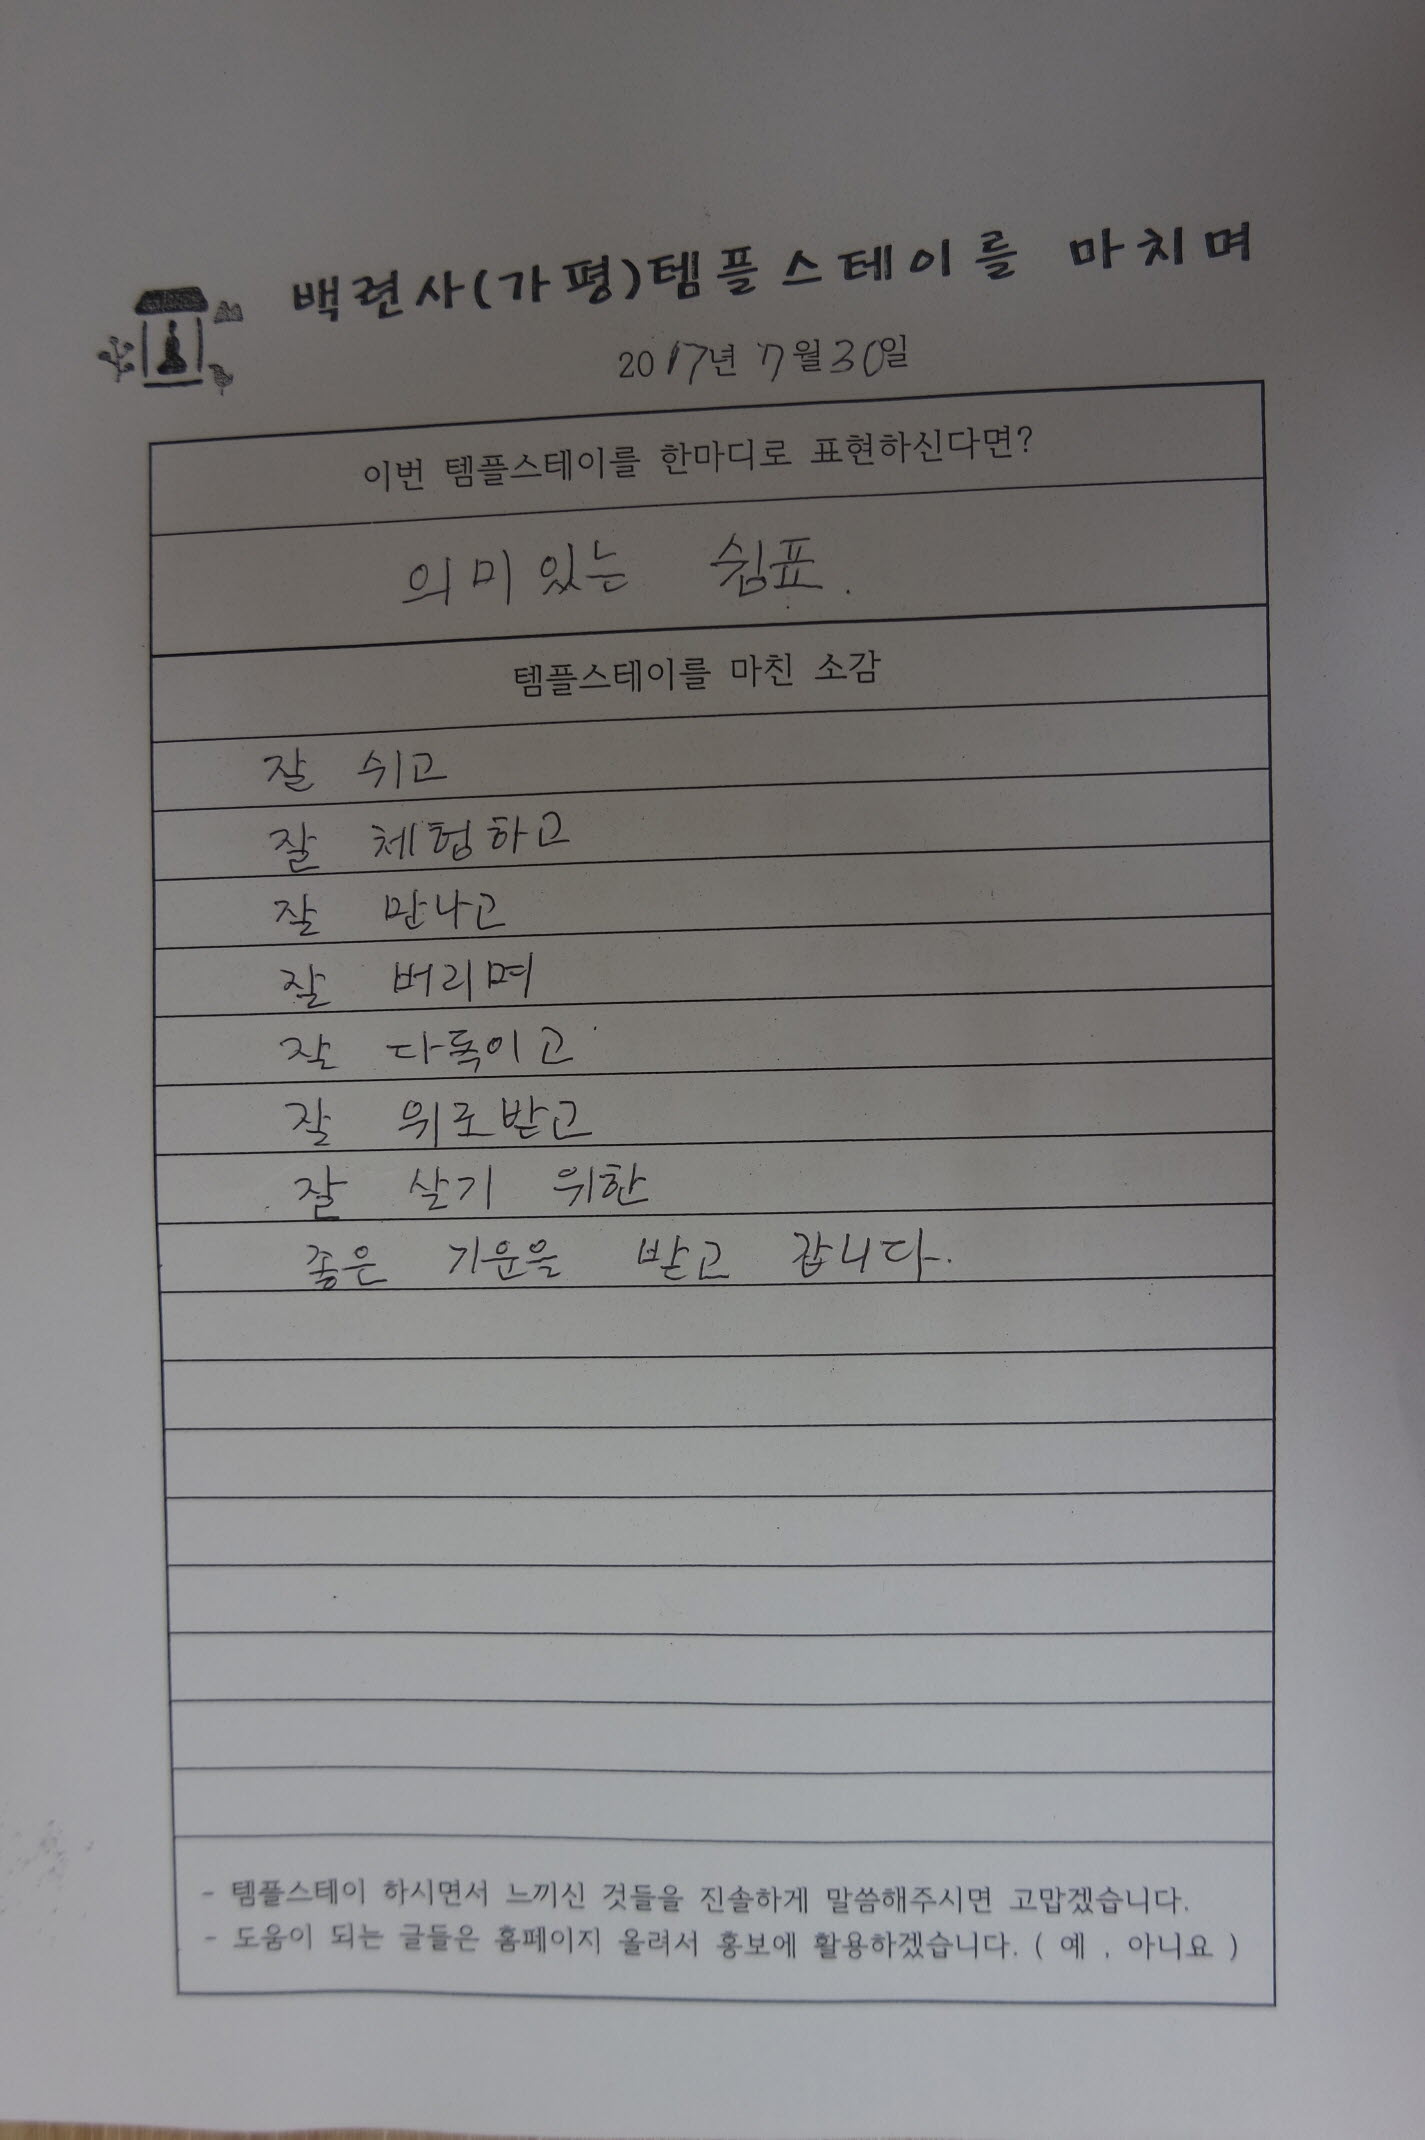 백련사(가평)템플스테이를 마치며
2017년 7월30일
이번 템플스테이를 한마디로 표현하신다면?
의미있는 쉼표.
템플스테이를 마친 소감
잘 쉬고
잘 체험하고
잘 만나고
잘 버리며
잘 다독이고
잘 위로받고
잘 살기 위한
좋은 기운을 받고 갑니다.
- 템플스테이 하시면서 느끼신 것들을 진솔하게 말씀해주시면 고맙겠습니다.
- 도움이 되는 글들은 홈페이지 올려서 홍보에 활용하겠습니다. ( 예 , 아니요 )